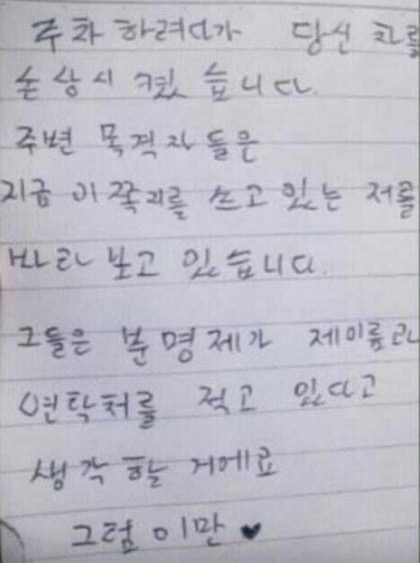 주차 하려다가 당신 차를
손상시켰습니다.
주변 목격자들은
지금 이 쪽지를 쓰고 있는 저를
바라 보고 있습니다.
그들은 분명 제가 제이름과
연락처를 적고 있다고
생각 할 거에요
그럼 이만 ♥